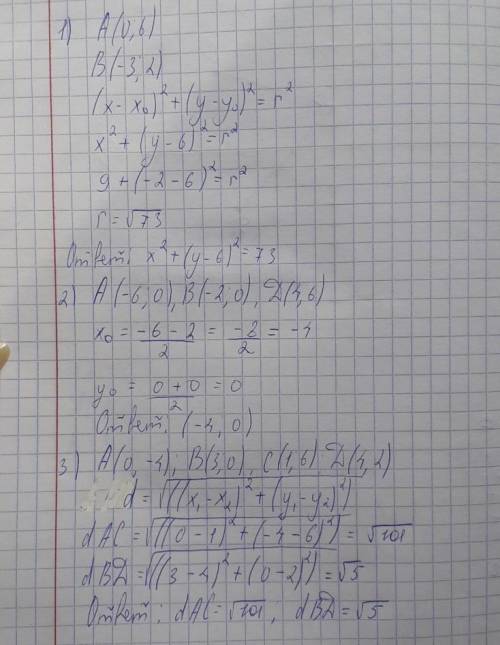 1) A(0,6)
B(-3; 2)
(x - x₀)² + (y - y₀)² = r²
x² + (y - 6)² = r²
9 + (-2 - 6)² = r²
r = √73
Ответ: x² + (y - 6)² = 73
2) A(-6; 0), B(-2; 0), D(4, 6)
x₀ = (-6 - 2)/2 = -8/2 = -4
y₀ = (0 + 0)/2 = 0
Ответ: (-4, 0)
3) A(0, -4); B(3, 0), C(1, 6) D(4, 2)
d = √((x₁ - x₂)² + (y₁ - y₂)²)
dAC = √((0 - 1)² + (-4 - 6)²) = √101
dBD = √((3 - 4)² + (0 - 2)²) = √5
Ответ: dAC = √101; dBD = √5